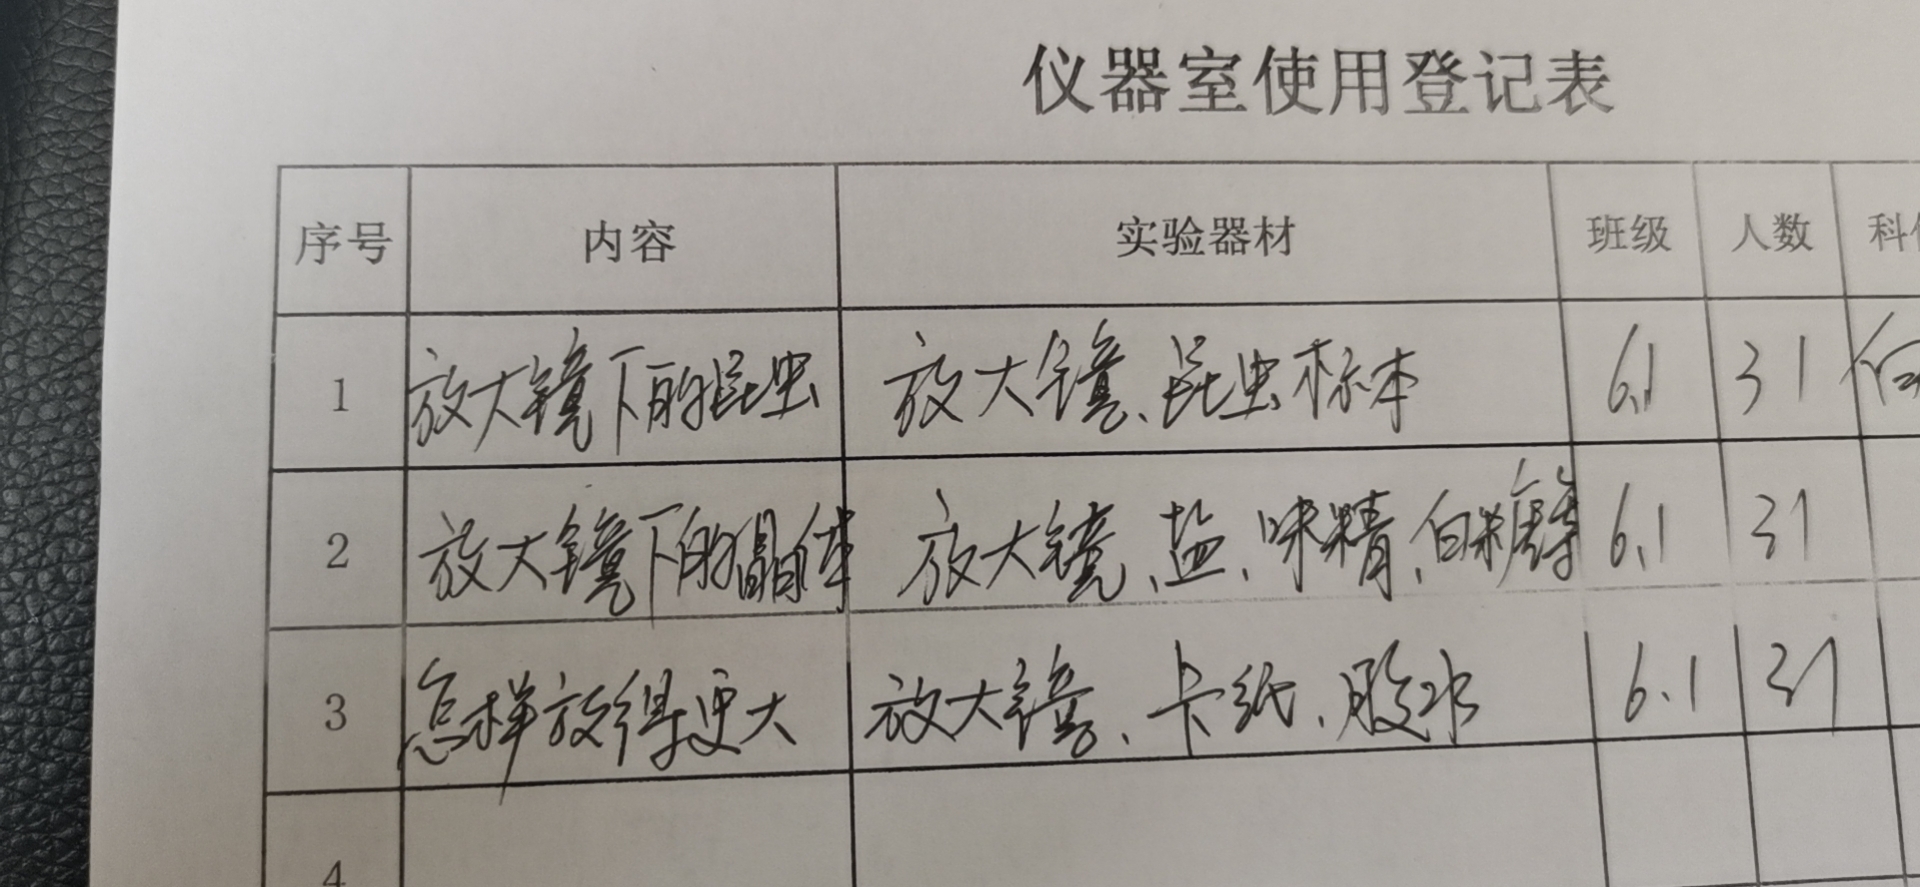 仪器室使用登记表
序号 内容 实验器材 班级 人数 科
1 放大镜下的昆虫 放大镜、昆虫标本 6.1 31
2 放大镜下的晶体 放大镜、盐、味精、白糖等 6.1 31
3 怎样放得更大 放大镜、卡纸、胶水 6.1 31
4